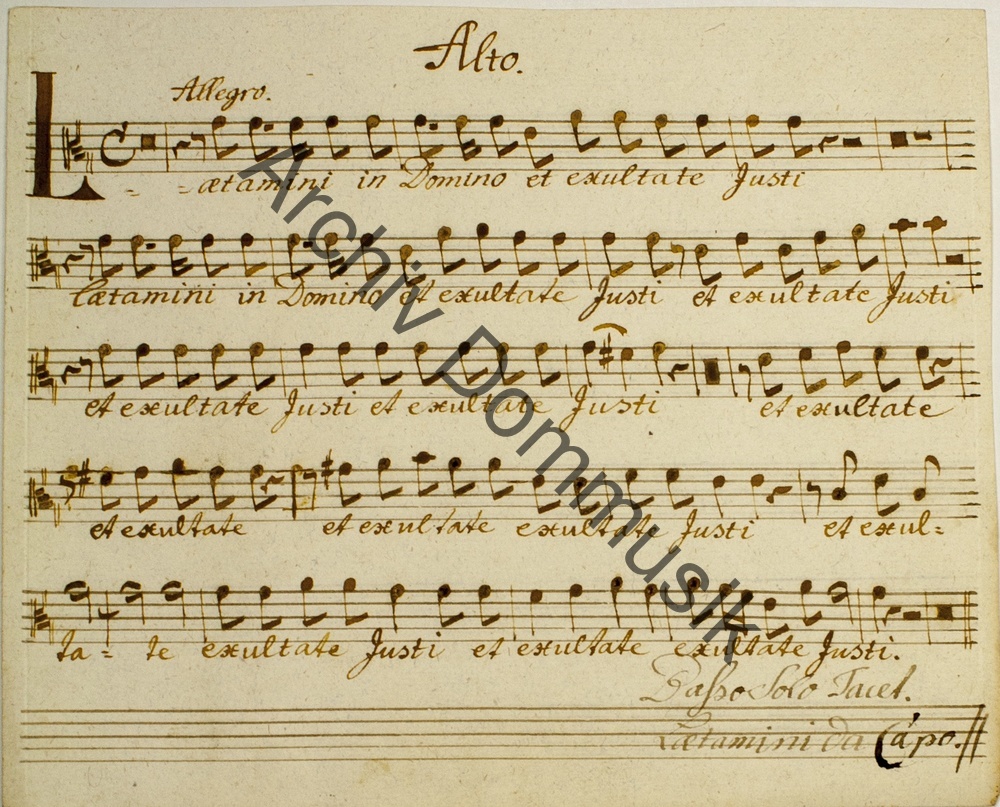 Alto.
Allegro.
L - - ætamini in Domino et exultate Justi
lætamini in Domino et exultate Justi et exultate Justi
et exultate Justi et exultate Justi et exultate
et exultate et exultate exultate Justi et exul=
ta = te exultate Justi et exultate exultate Justi.
Basso Solo Tacet.
Lætamini da Capo.
Archiv Dommusik